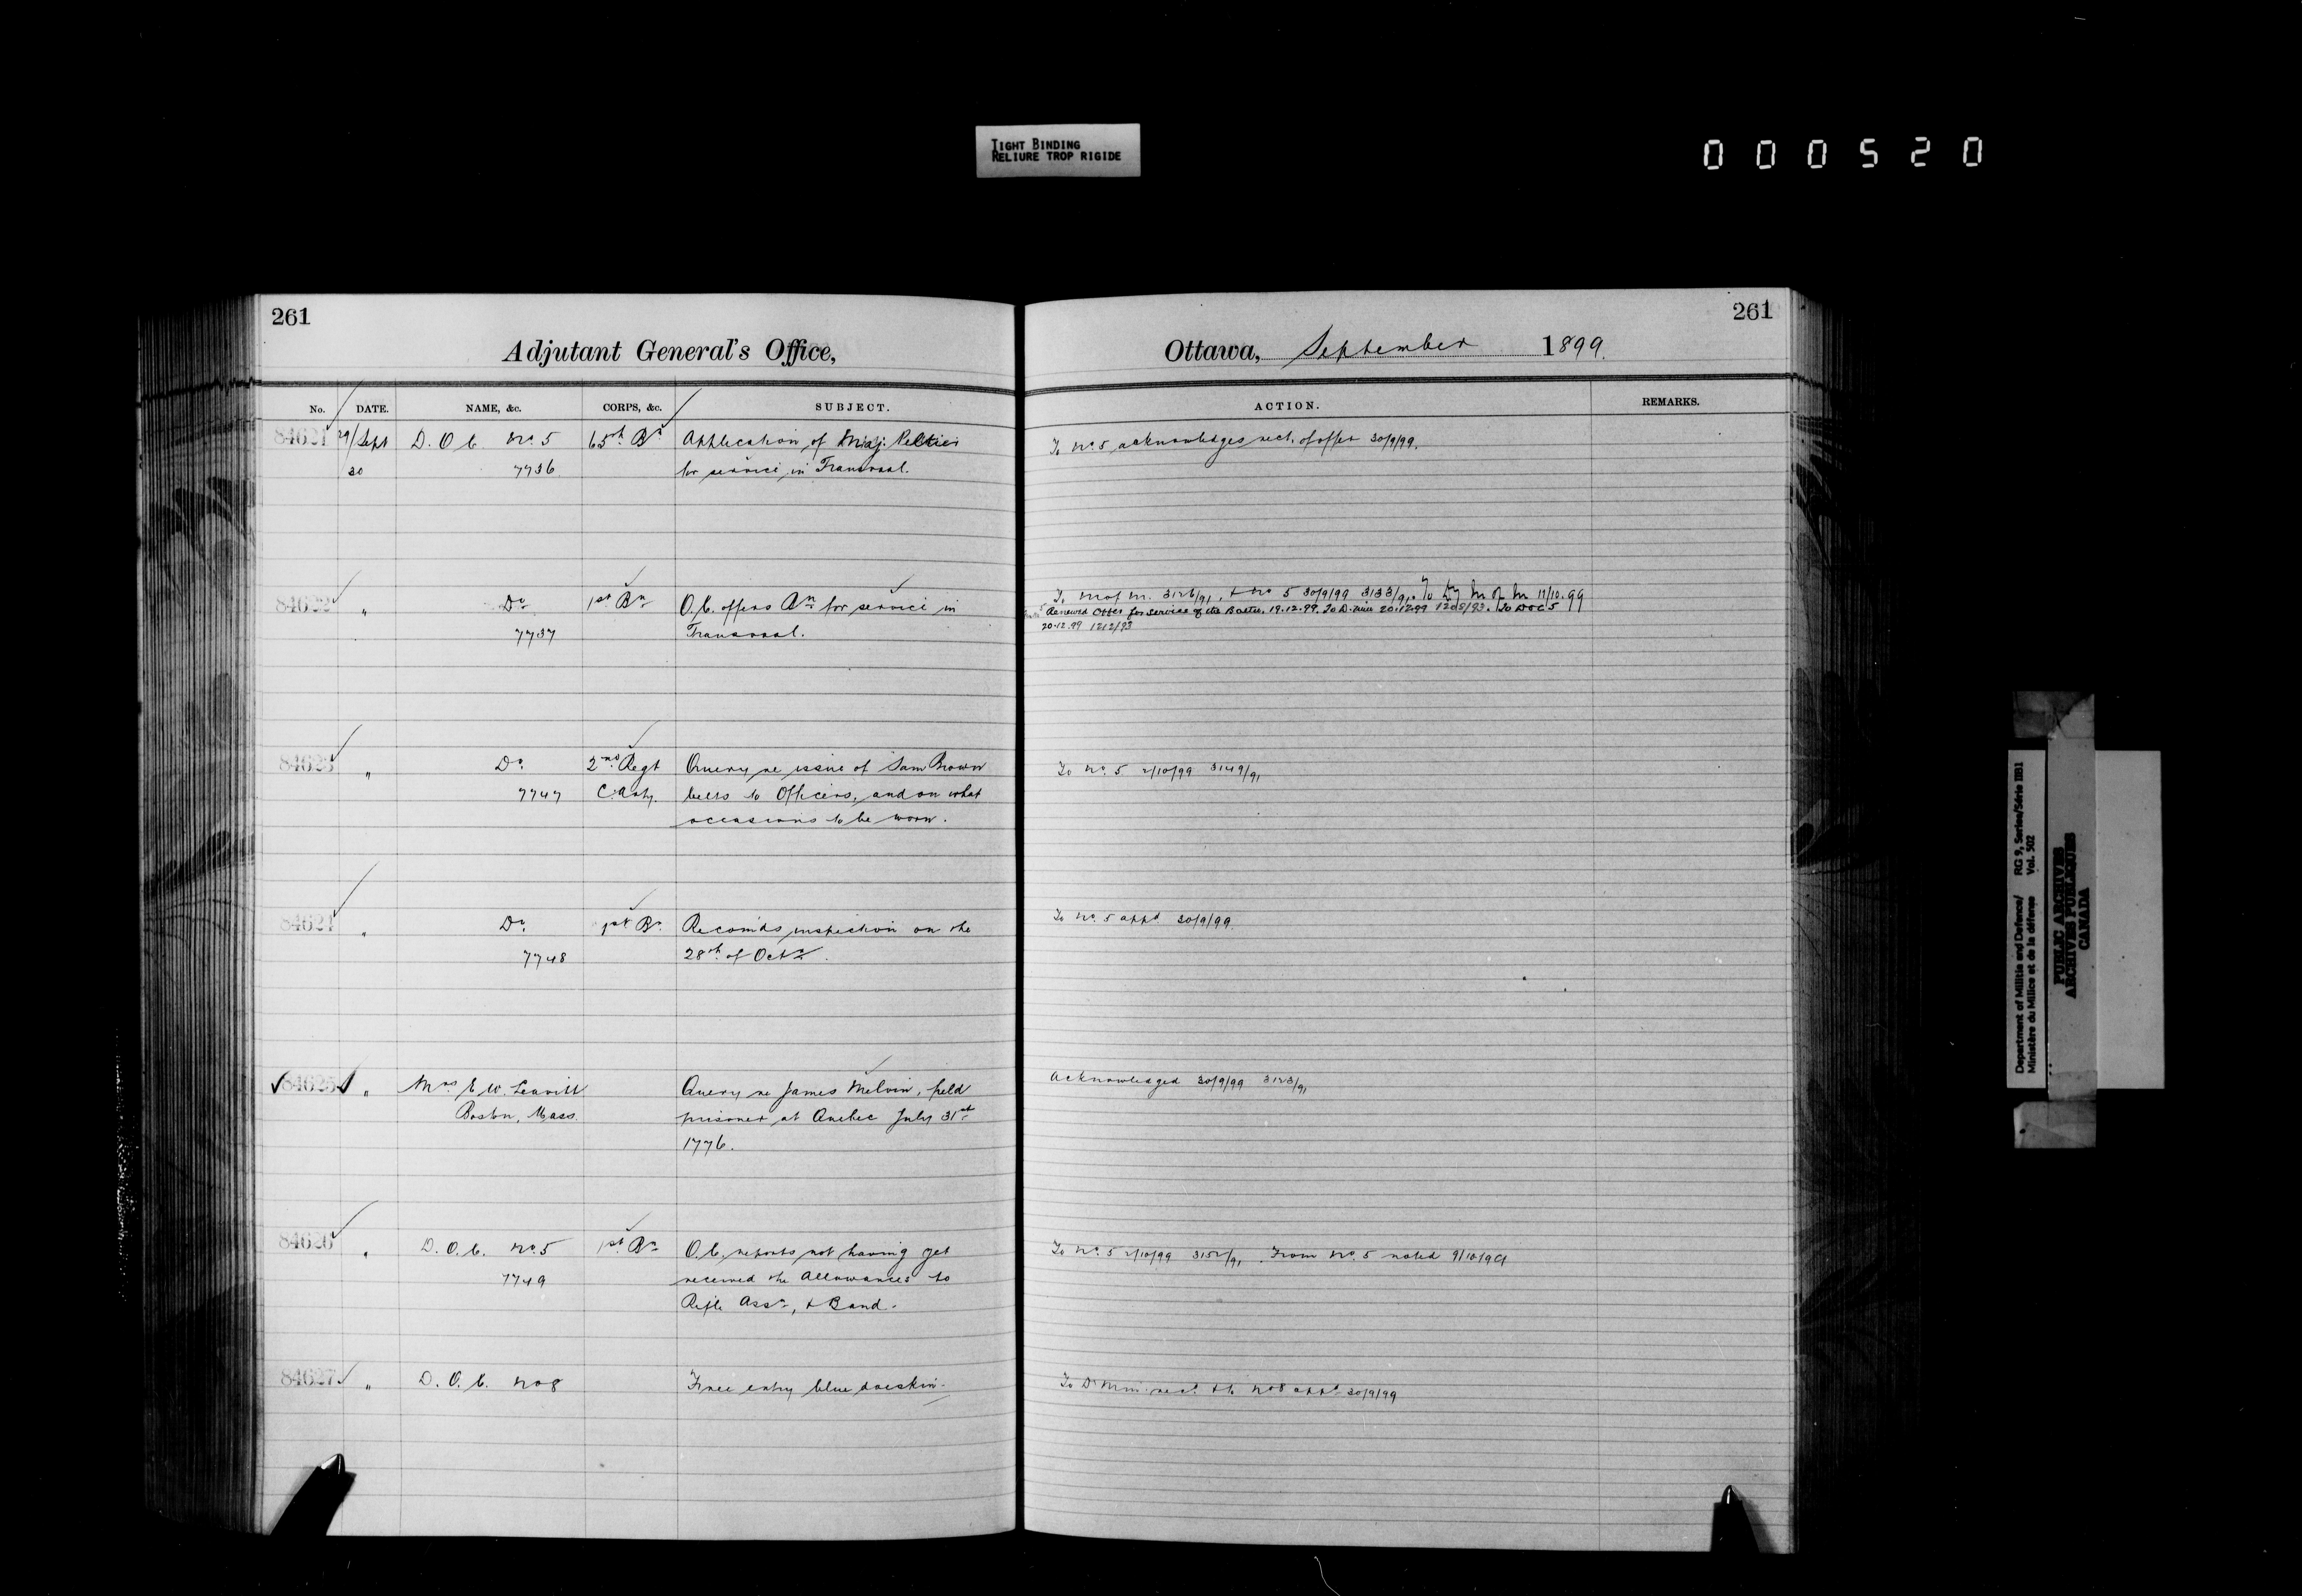 TIGHT BINDING
RELIURE TROP RIGIDE
000520
261
Adjutant General's Office,
No. DATE. NAME, &c. CORPS, &c. SUBJECT.
84621 29/Sept D. O. C. No. 5 65th Bn Application of Maj. Peltier
30 7736 for service in Transvaal.
84622 " Do 1st Bn O.C. offers Bn for service in
7737 Transvaal.
84623 " Do. 2nd Regt Query re issue of Sam Brown
7747 C. Arty. belts to Officers, and on what
occasions to be worn.
84624 " Do. 1st Bn. Recomds inspection on the
7748 28th of Octr.
84625 " Mrs E. W. Leavitt Query re James Melvin, held
Boston, Mass. prisoner at Quebec July 31st
1776.
84626 " D. O. C. No. 5 1st Bn O.C. reports not having yet
7749 received the Allowances to
Rifle Assn, & Band.
84627 " D. O. C. No 8 Free entry blue doeskin.
261
Ottawa, September 1899.
ACTION. REMARKS.
To No. 5 acknowledges rect. of offer 30/9/99.
To M of M. 3126/91, & No 5 30/9/99 3133/91. To M of M 11/10.99
Renewed Offer for service of the Battn. 19.12.99. To D. Min 20.12.99 1205/93. To DOC 5
20.12.99 1212/93
To No. 5 2/10/99 3149/91
To No. 5 appd 30/9/99.
Acknowledged 30/9/99 3123/91
To No. 5 2/10/99 3152/91. From No. 5 noted 9/10/99
To D. Min. recd. & to No 8 appd 30/9/99
Department of Militia and Defence/ RG 9, Series/Série IIB1
Ministère du Milice et de la défense Vol. 502
PUBLIC ARCHIVES
ARCHIVES PUBLIQUES
CANADA